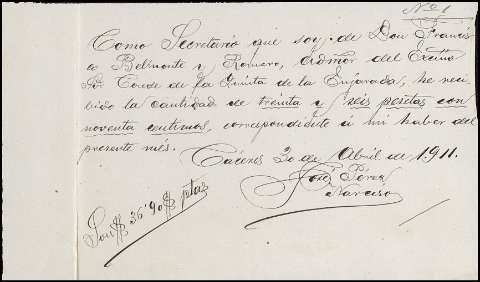 Nº 1
Como Secretario que soy de Don Francis-
co Belmonte y Romero, Admor del Excmo
Sor Conde de la Quinta de la Enjarada, he reci-
bido la cantidad de treinta y seis pesetas con
noventa centimos, correspondiente á mi haber del
presente mes.
Cáceres 30 de Abril de 1911.
José Pérez
Narciso
Son $$ 36'90 $$ ptas